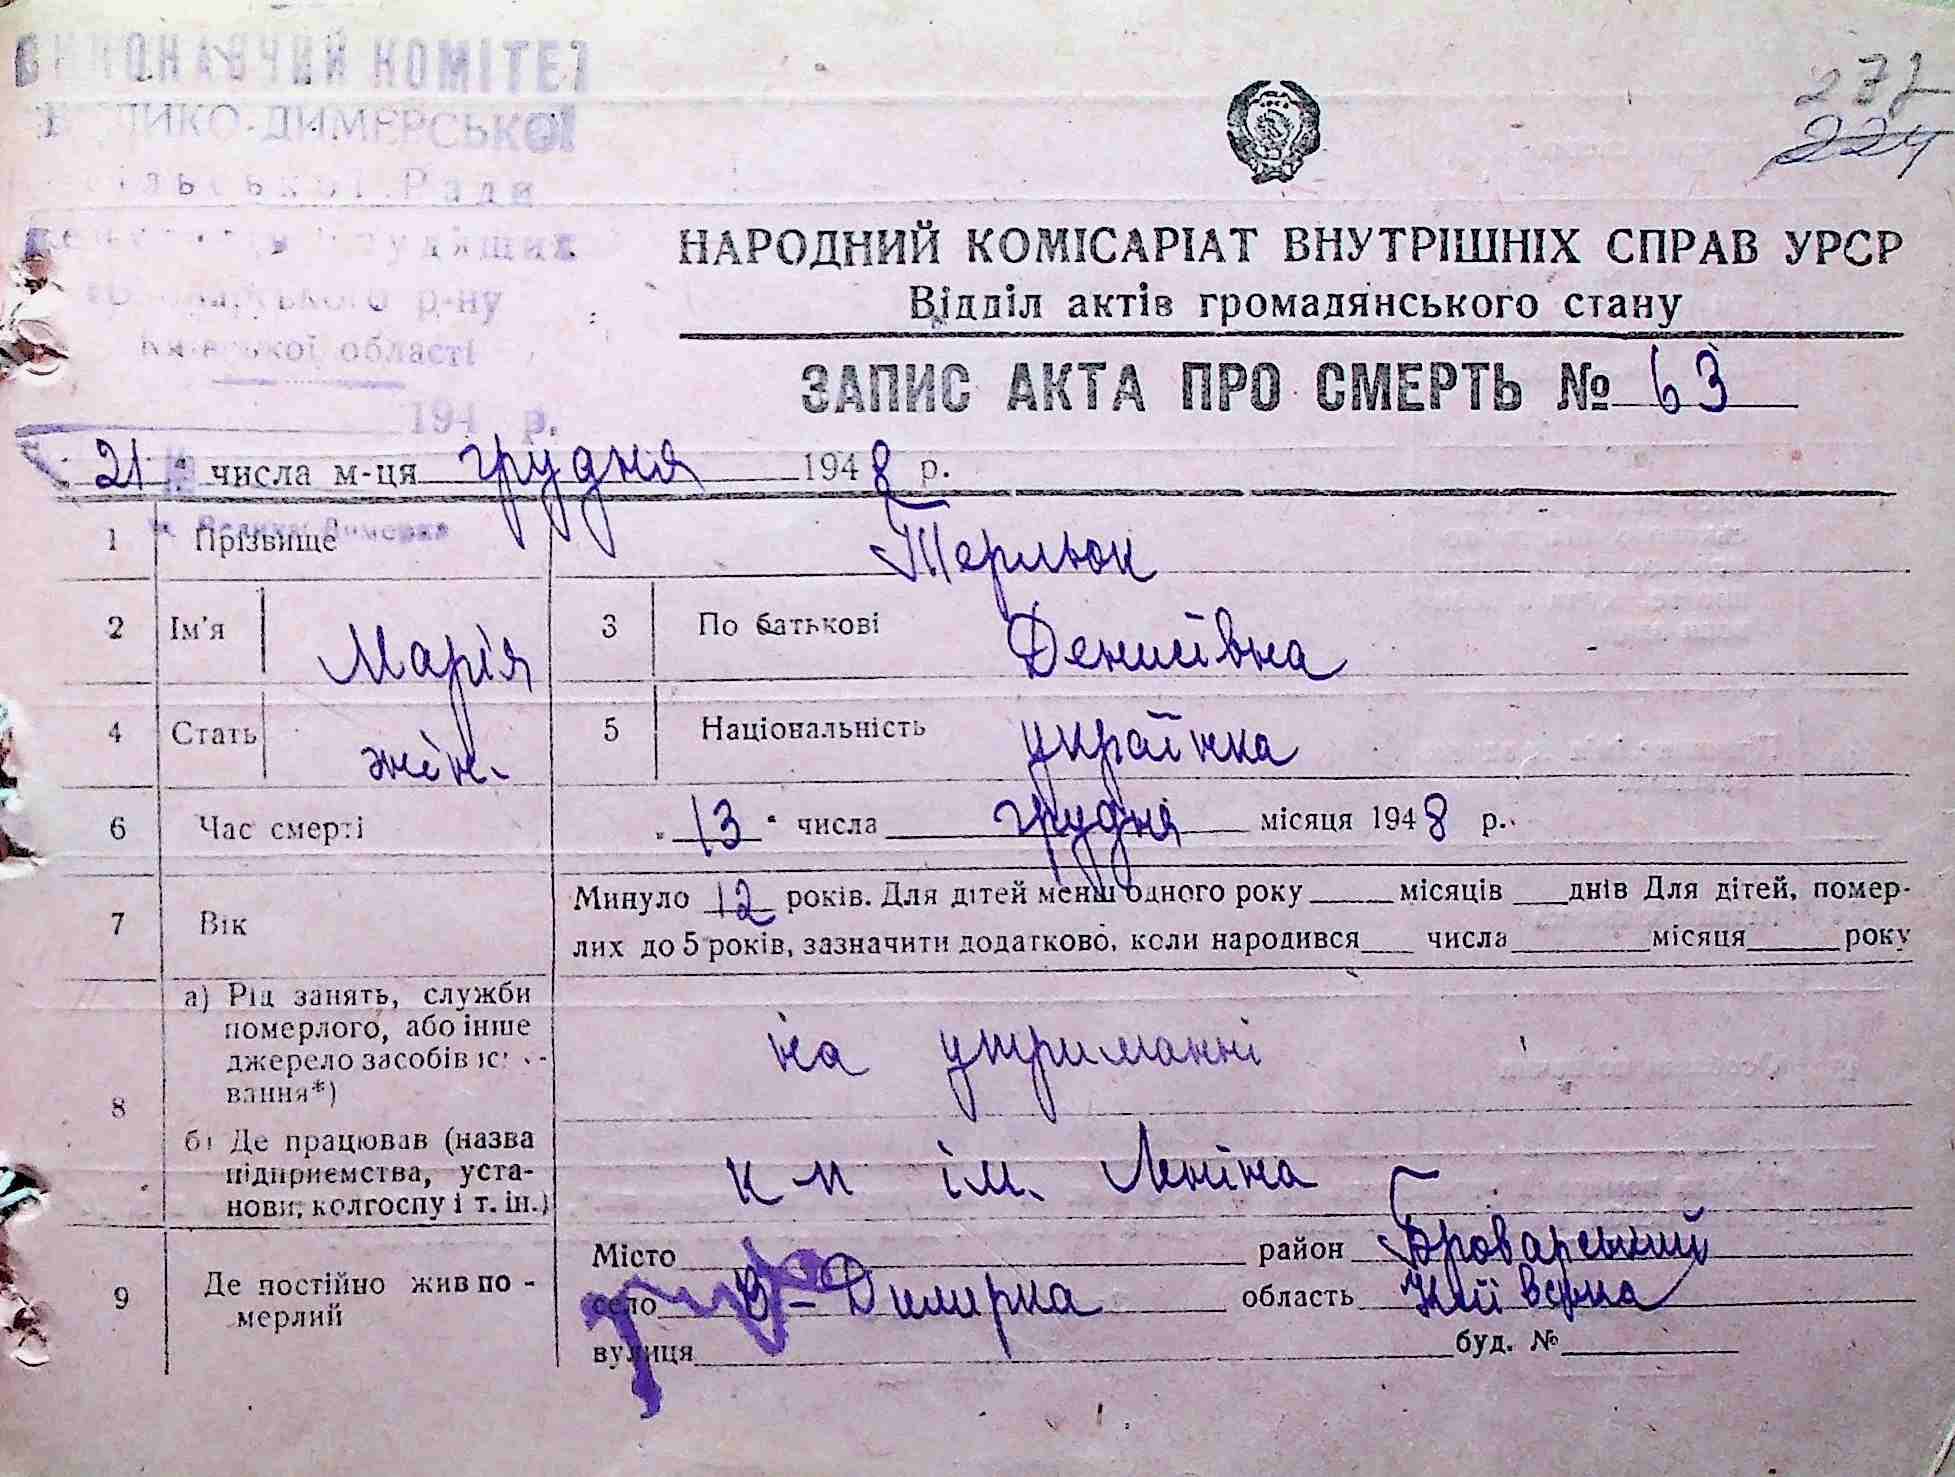 ВИКОНАВЧИЙ КОМІТЕТ
ВЕЛИКО-ДИМЕРСЬКОЇ
сільської Ради
р-ну
Київської області
194 р.
277
224
НАРОДНИЙ КОМІСАРІАТ ВНУТРІШНІХ СПРАВ УРСР
Відділ актів громадянського стану
ЗАПИС АКТА ПРО СМЕРТЬ № 63
21 " числа м-ця грудня 1948 р.
с. Велика Димерка
1 Прізвище Терльок
2 Ім'я Марія 3 По батькові Денисівна
4 Стать жін. 5 Національність українка
6 Час смерті " 13 " числа грудня місяця 1948 р.
7 Вік Минуло 12 років. Для дітей менш одного року місяців днів Для дітей, помер-
лих до 5 років, зазначити додатково, коли народився числа місяця року
8 а) Рід занять, служби
померлого, або інше
джерело засобів
вання*)
на утриманні
б) Де працював (назва
підприємства, уста-
нови, колгоспу і т. ін.)
к-п ім. Леніна
9 Де постійно жив по-
мерлий
Місто район Броварський
село В-Димерка область Київська
вулиця буд. №